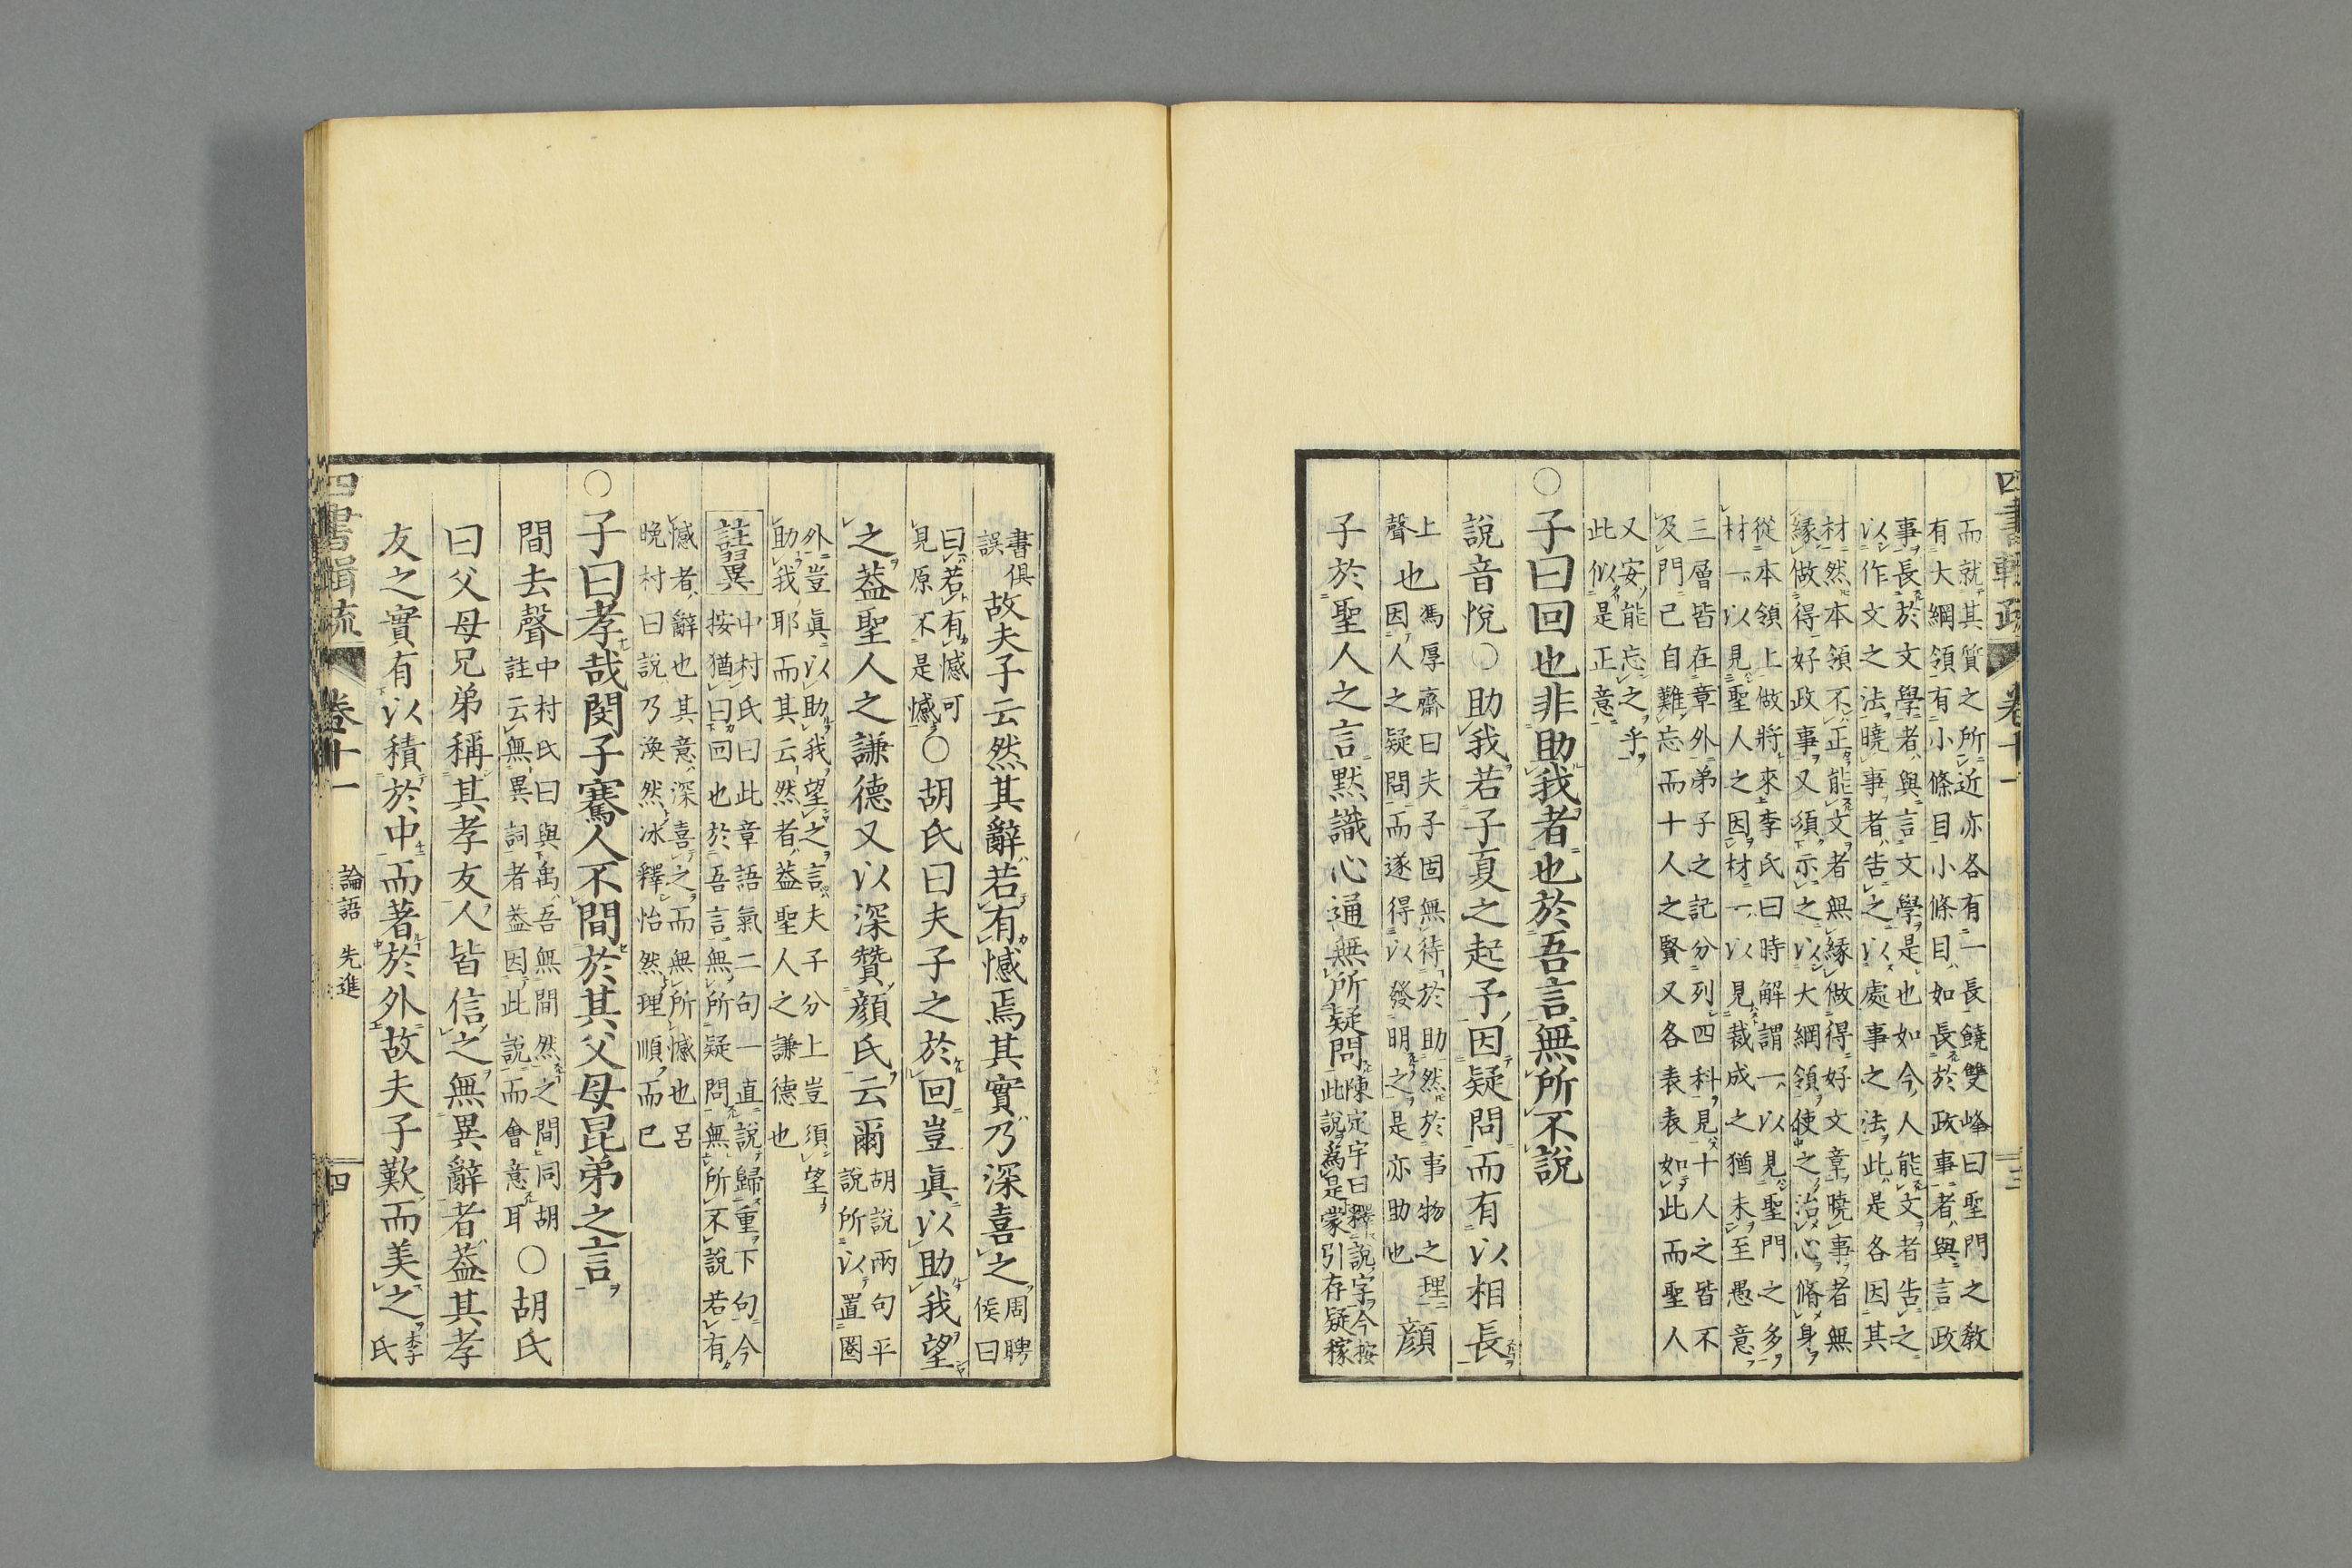 四書輯疏 卷十一 三
而就其質之所近亦各有一長饒雙峰曰聖門之敎
有大綱領有小條目小條目如長於政事者與言政
事長於文學者與言文學是也如今人能文者告之
以作文之法曉事者告之以處事之法此是各因其
材然本領不正能文者無緣做得好文章曉事者無
緣做得好政事又須示之以大綱領使之治心脩身
從本領上做將來李氏曰時解謂一以見聖門之多
材一以見聖人之因材一以見裁成之猶未至愚意
三層皆在章外弟子之記分列四科見十人之皆不
及門已自難忘而十人之賢又各表表如此而聖人
又安能忘之乎
此似是正意
○子曰回也非助我者也於吾言無所不說
說音悅○助我若子夏之起予因疑問而有以相長
上馮厚齋曰夫子固無待於助然於事物之理
聲也因人之疑問而遂得以發明之是亦助也顏
子於聖人之言默識心通無所疑問陳定宇曰釋說字今按
此說爲是蒙引存疑稼
書俱
誤故夫子云然其辭若有憾焉其實乃深喜之周聘
侯曰
曰若有憾可
見原不是憾○胡氏曰夫子之於回豈眞以助我望
之葢聖人之謙德又以深贊顏氏云爾胡說兩句平
說所以置圈
外豈眞以助我望之言夫子分上豈須望
助我耶而其云然者葢聖人之謙德也
註異中村氏曰此章語氣二句一直說歸重下句今
按猶曰回也於吾言無所疑問無所不說若有
憾者辭也其意深喜之而無所憾也呂
晚村曰說乃渙然冰釋怡然理順而已
○子曰孝哉閔子騫人不間於其父母昆弟之言
間去聲中村氏曰與禹吾無間然之間同胡
註云無異詞者葢因此說而會意耳○胡氏
曰父母兄弟稱其孝友人皆信之無異辭者葢其孝
友之實有以積於中而著於外故夫子歎而美之李
氏
四書輯疏 卷十一 論語 先進 四